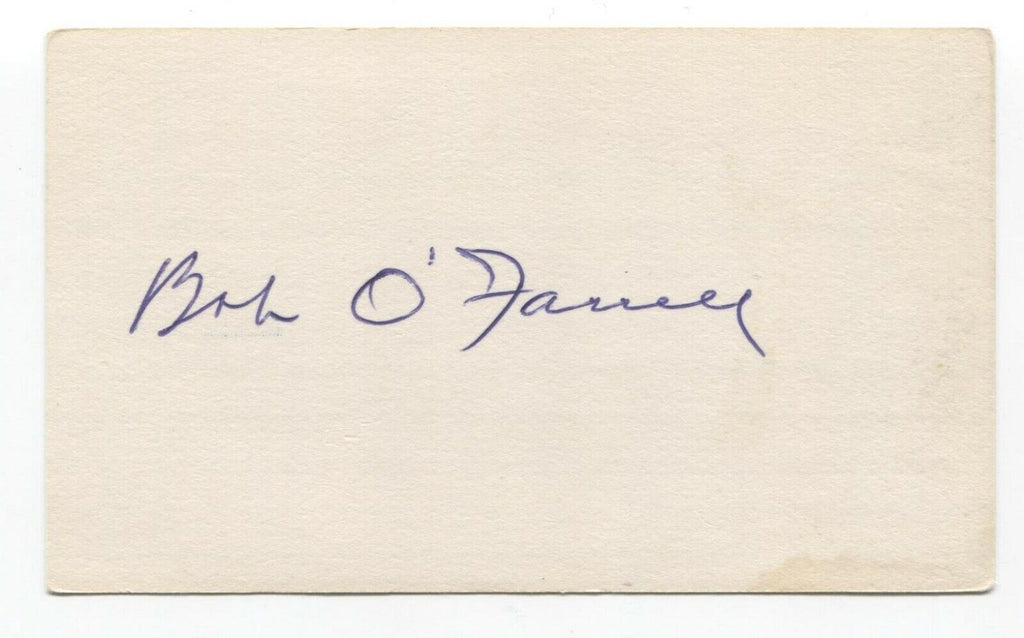 Bob O'Farrell